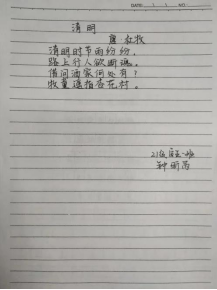 DATE
清明
唐·杜牧
清明时节雨纷纷,
路上行人欲断魂。
借问酒家何处有?
牧童遥指杏花村。